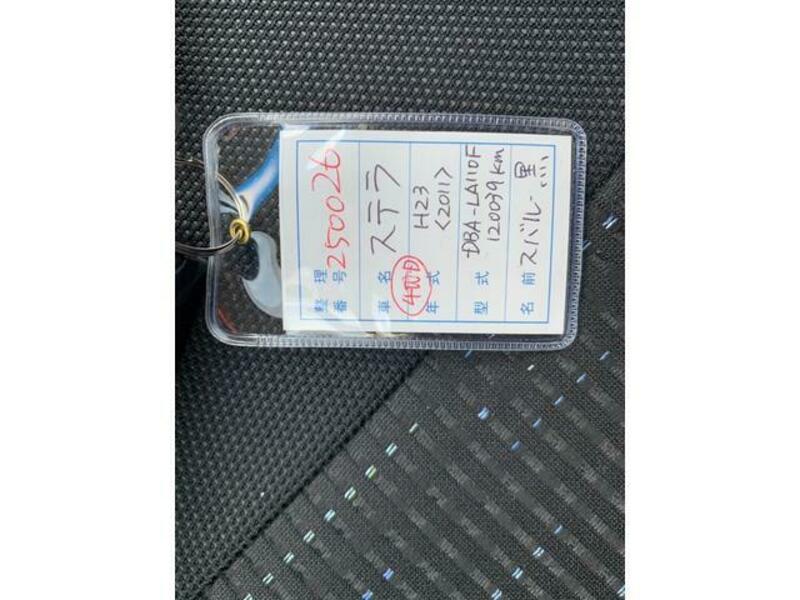 整理番号 250026
車名 ステラ
4WD
年式 H23
<2011>
型式 DBA-LA110F
120039km
名前 スバル 黒